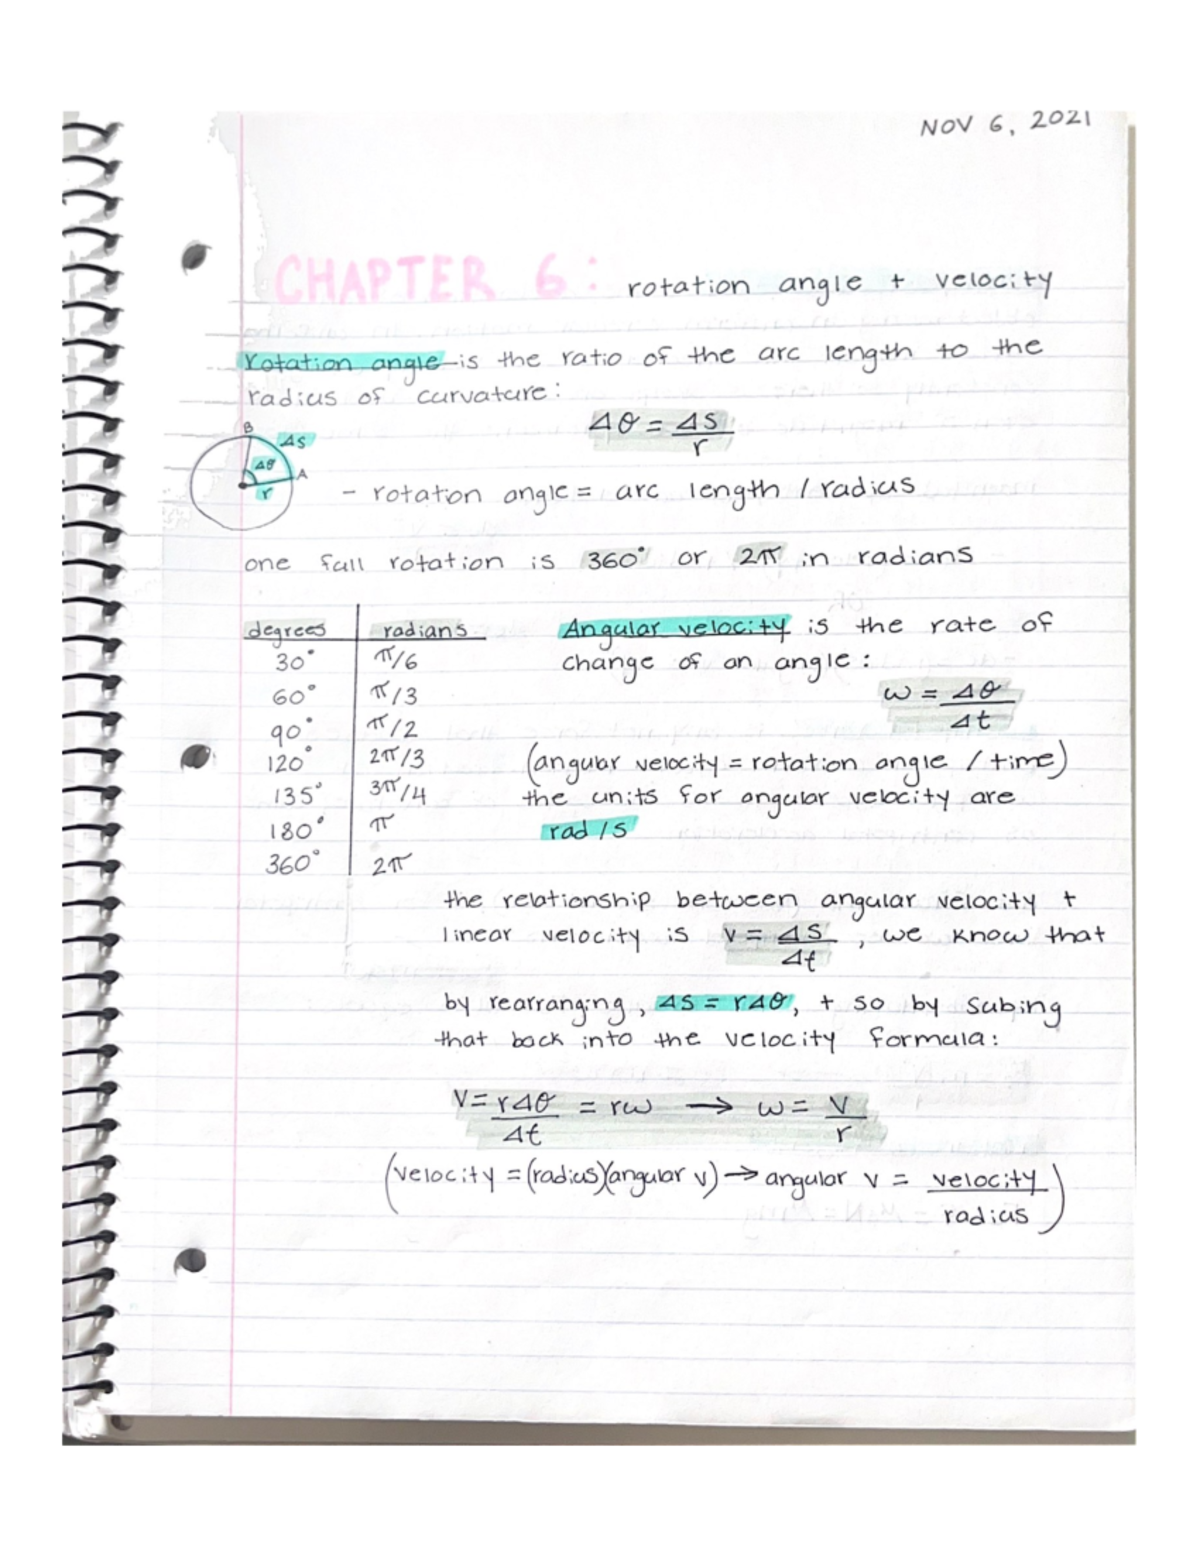 NOV 6, 2021
CHAPTER 6: rotation angle + velocity
rotation angle is the ratio of the arc length to the
radius of curvature:
Δθ = Δs/r
B
Δs
Δθ
A
r
- rotation angle = arc length / radius
one full rotation is 360° or 2π in radians
degrees radians
30° π/6
60° π/3
90° π/2
120° 2π/3
135° 3π/4
180° π
360° 2π
Angular velocity is the rate of
change of an angle:
ω = Δθ/Δt
(angular velocity = rotation angle / time)
the units for angular velocity are
rad/s
the relationship between angular velocity +
linear velocity is v = Δs/Δt, we know that
by rearranging, Δs = rΔθ, + so by subing
that back into the velocity formula:
v = rΔθ/Δt = rω → ω = v/r
(velocity = (radius)(angular v) → angular v = velocity/radius)